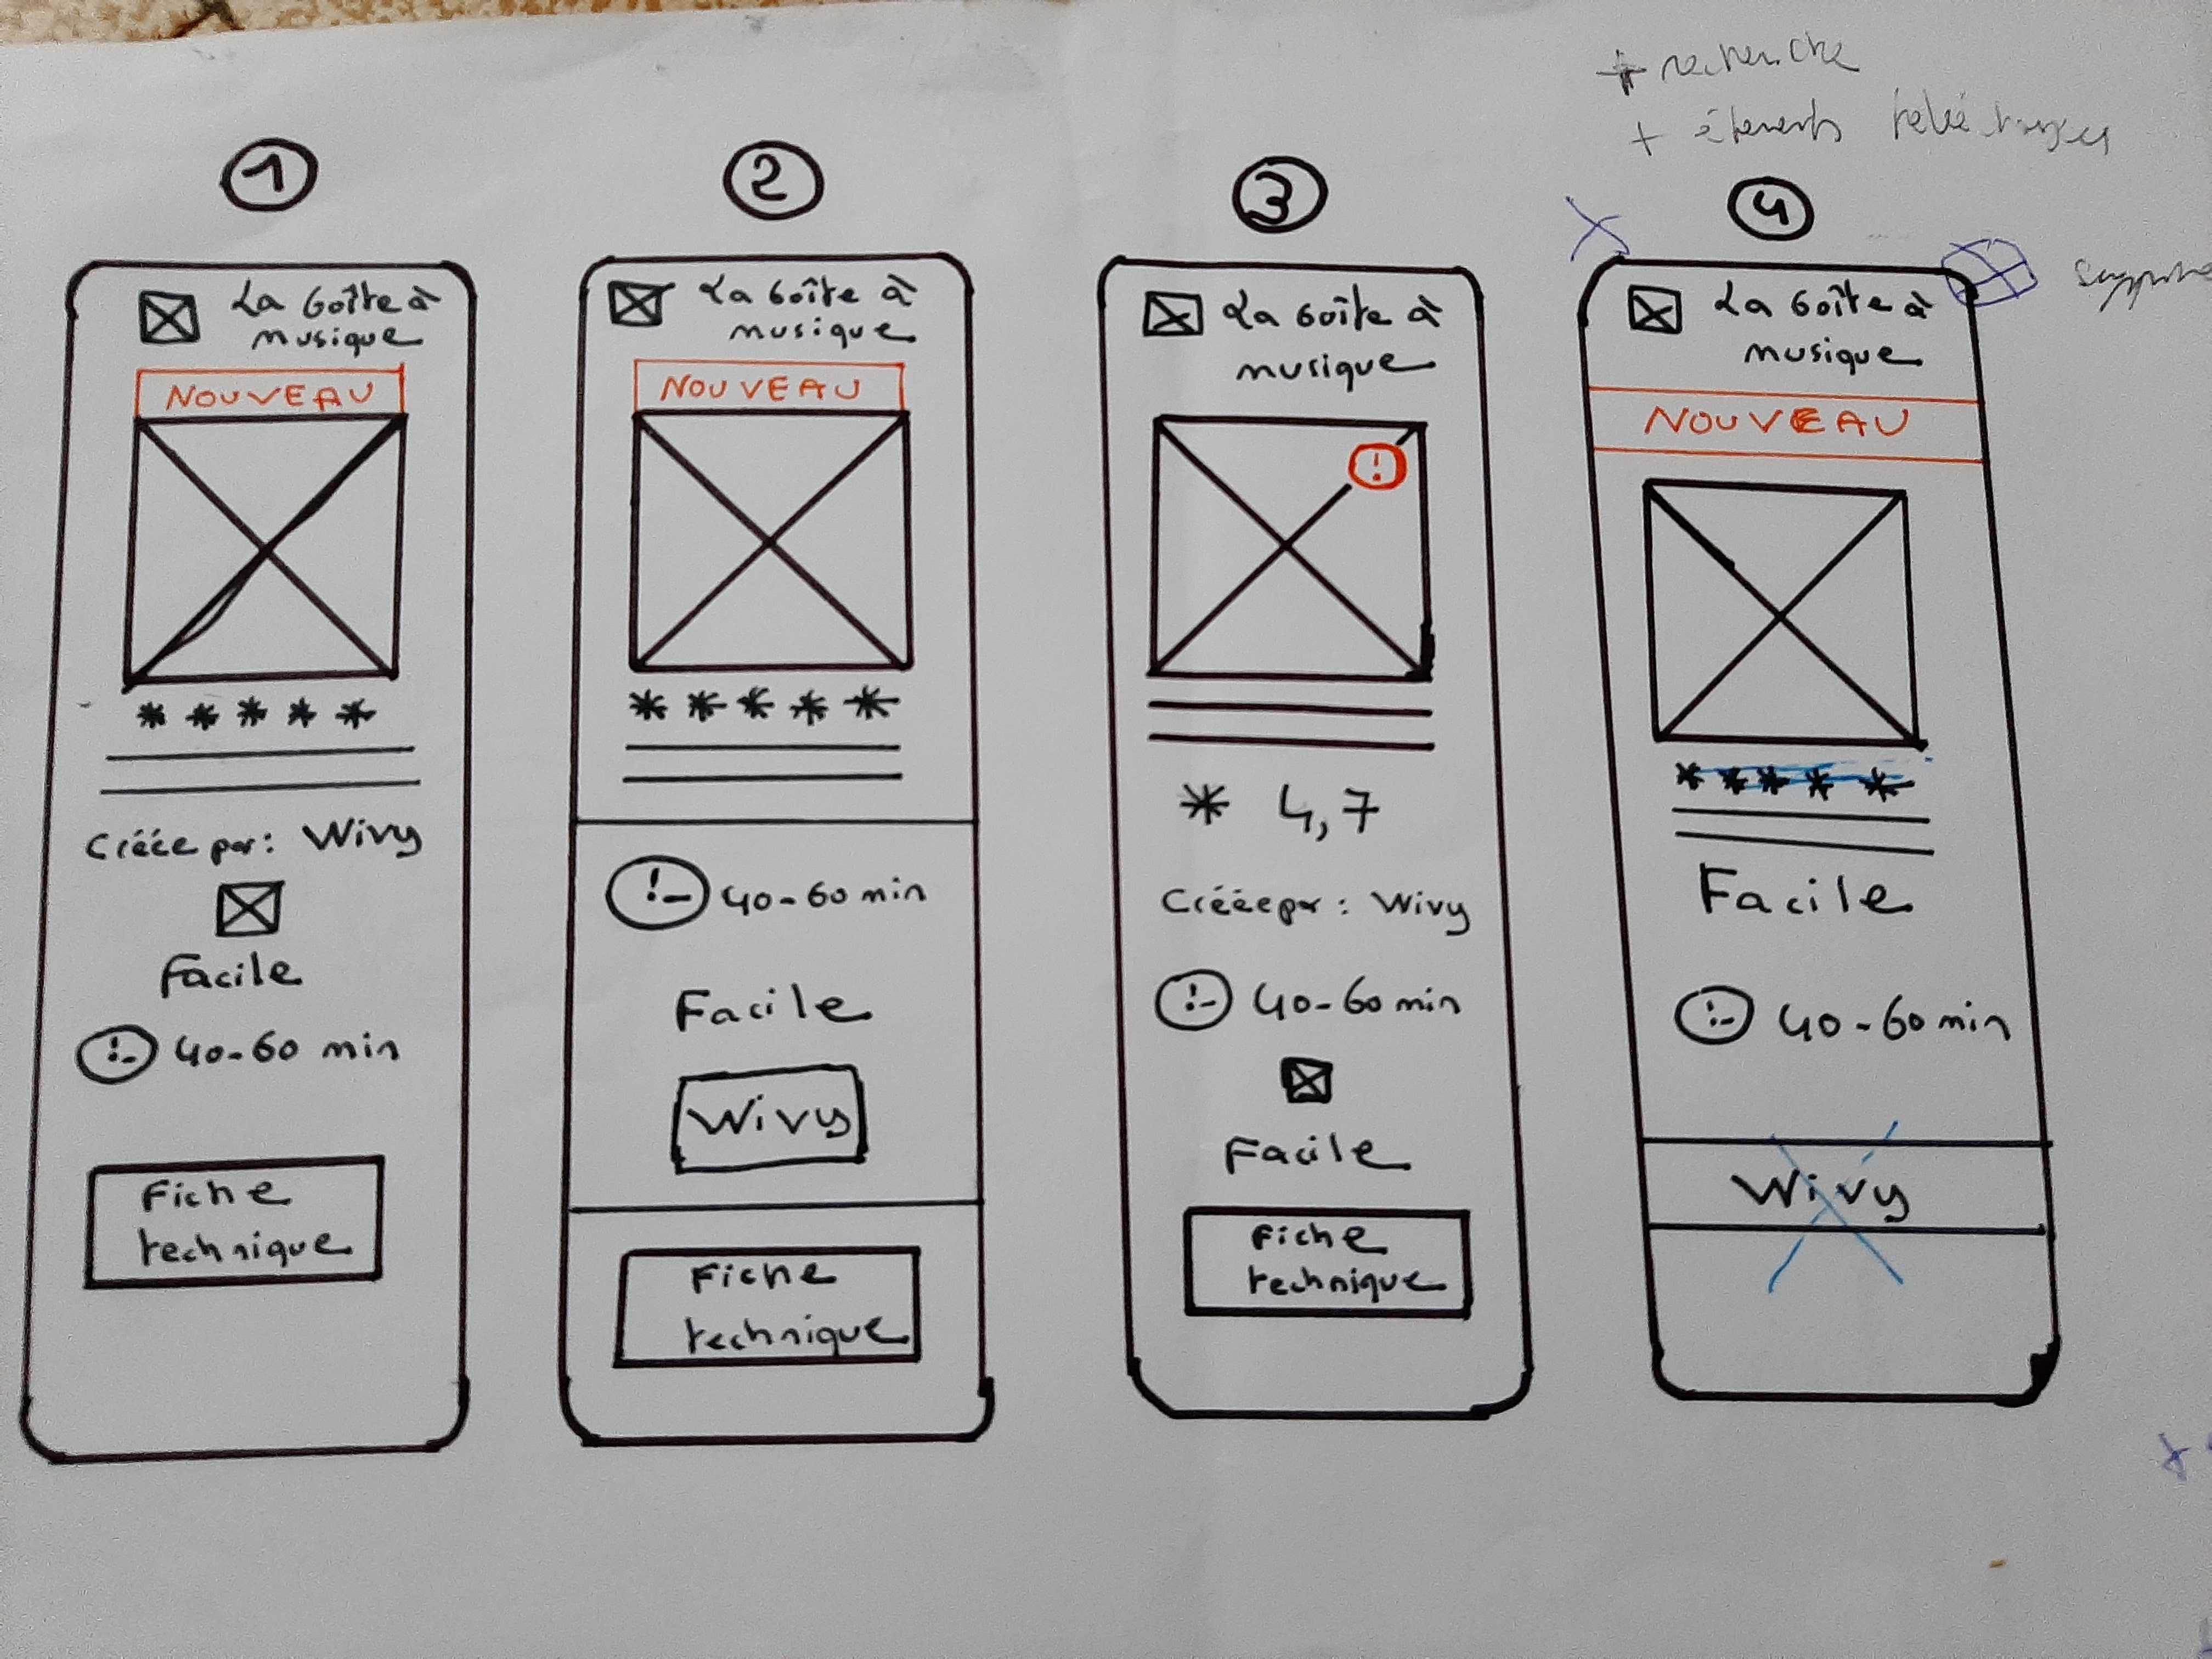 + recherche
+ éléments
1
2
3
4
La boîte à
musique
NOUVEAU
* * * * *
Créée par: Wivy
Facile
40-60 min
Fiche
technique
La boîte à
musique
NOUVEAU
* * * * *
40-60 min
Facile
Wivy
Fiche
technique
La boîte à
musique
!
* 4,7
Créée par: Wivy
40-60 min
Facile
Fiche
technique
La boîte à
musique
NOUVEAU
* * * * *
Facile
40-60 min
Wivy